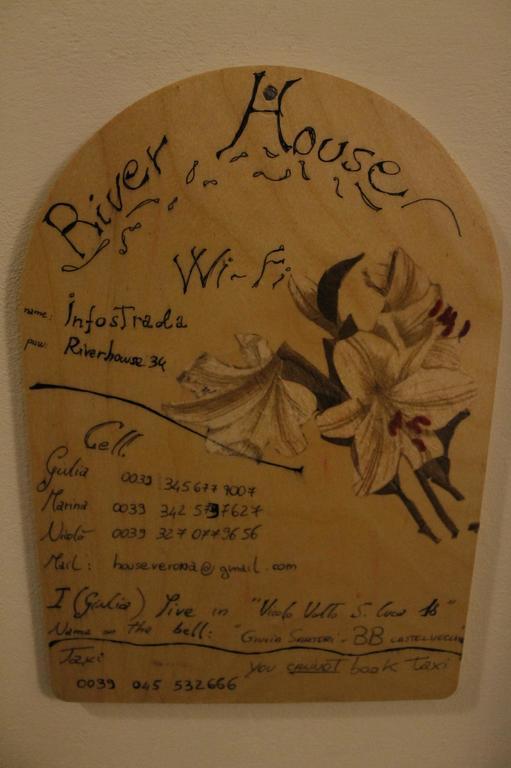 River House
Wi-Fi
name: Infostrada
psw: Riverhouse 34
Cell.
Giulia 0039 345 677 9007
Marina 0039 342
Nicolò 0039 327 0779656
Mail: houseverona@gmail.com
I (Giulia) live in "Vicolo Volto S. Luca
Name on the bell: "Giulia Sartori - BB
Taxi you cannot book Taxi
0039 045 532666